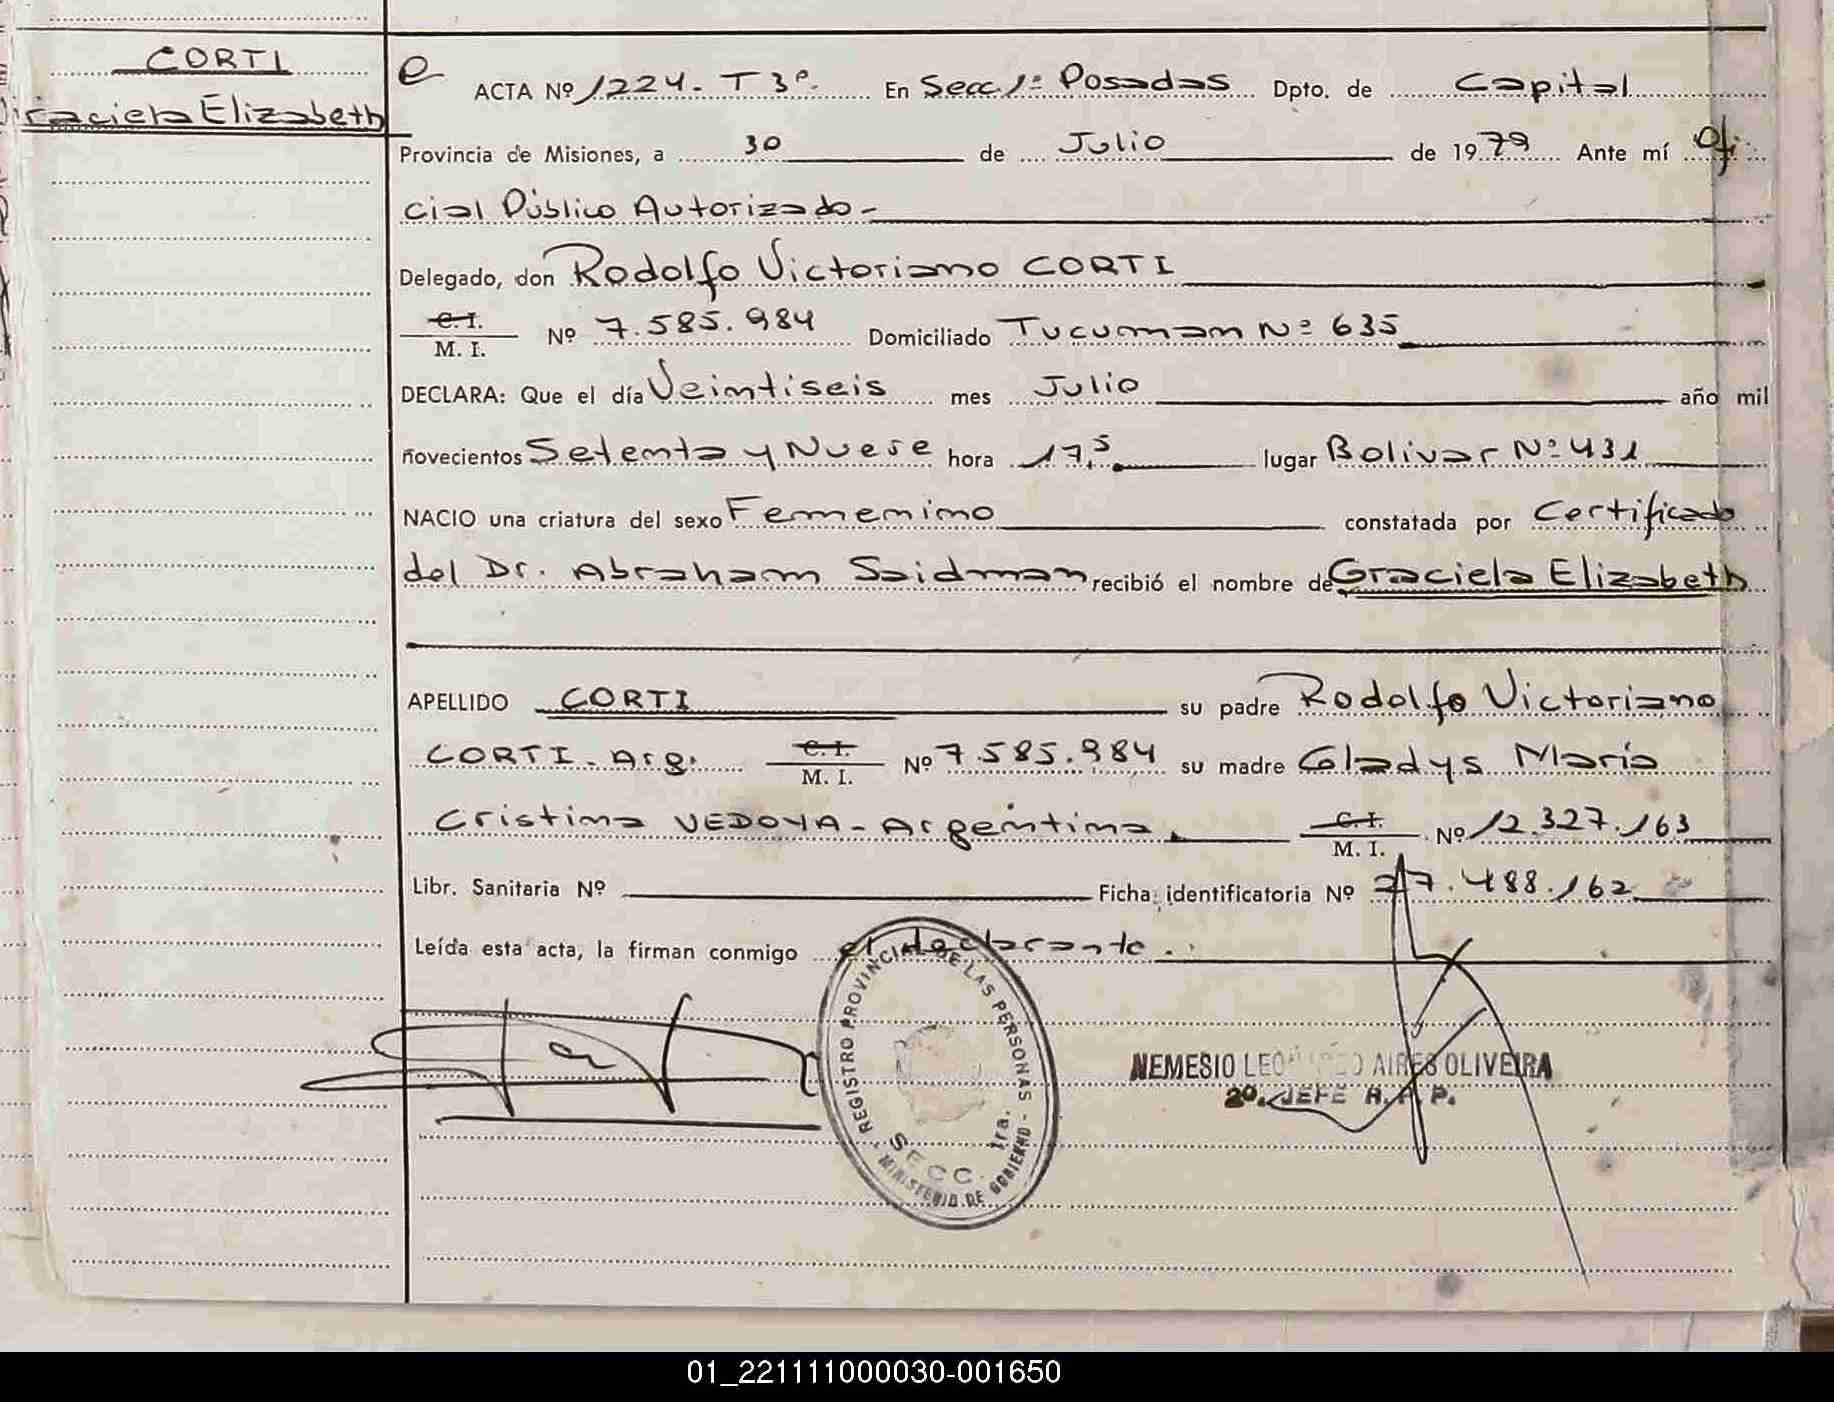 CORTI
Graciela Elizabeth
e ACTA Nº 1224. T 3º. En Secc 1ª Posadas Dpto. de Capital
Provincia de Misiones, a 30 de Julio de 1979 Ante mí Ofi
cial Público Autorizado-
Delegado, don Rodolfo Victoriano CORTI
C.I. M. I. Nº 7.585.984 Domiciliado Tucuman Nº 635
DECLARA: Que el día Veintiseis mes Julio año mil
novecientos Setenta y Nueve hora 17,5 lugar Bolivar Nº 431
NACIO una criatura del sexo Femenino constatada por Certificado
del Dr. Abraham Saidman recibió el nombre de Graciela Elizabeth
APELLIDO CORTI su padre Rodolfo Victoriano
CORTI - Arg. C.I. M. I. Nº 7.585.984 su madre Gladys María
Cristina VEDOYA - Argentina. C.I. M. I. Nº 12.327.163
Libr. Sanitaria Nº Ficha identificatoria Nº 27.488.162
Leída esta acta, la firman conmigo el declarante.
REGISTRO PROVINCIAL DE LAS PERSONAS - MINISTERIO DE GOBIERNO -
SECC. 1ra.
NEMESIO AIRES OLIVEIRA
2º. JEFE R. P. P.
01_221111000030-001650